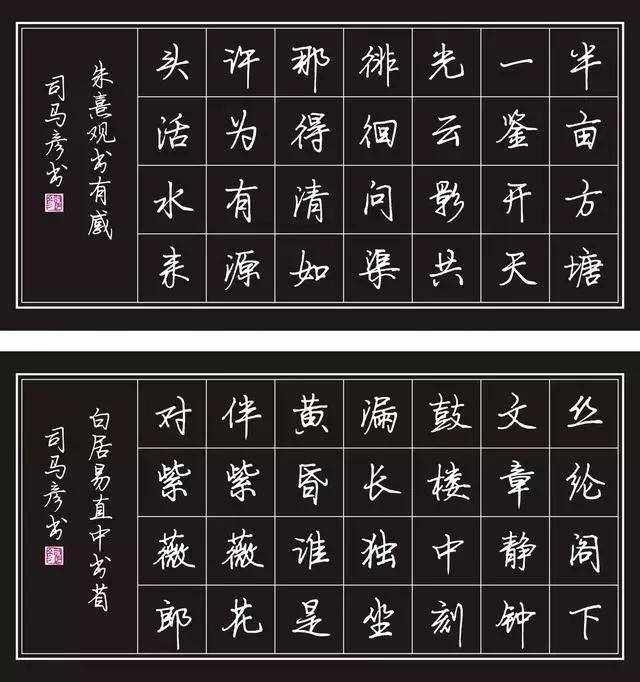 半亩方塘
一鉴开天
光云影共
徘徊问渠
那得清如
许为有源
头活水来
朱熹观书有感
司马彦书
丝纶阁下
文章静钟
鼓楼中刻
漏长独坐
黄昏谁是
伴紫薇花
对紫薇郎
白居易直中书省
司马彦书